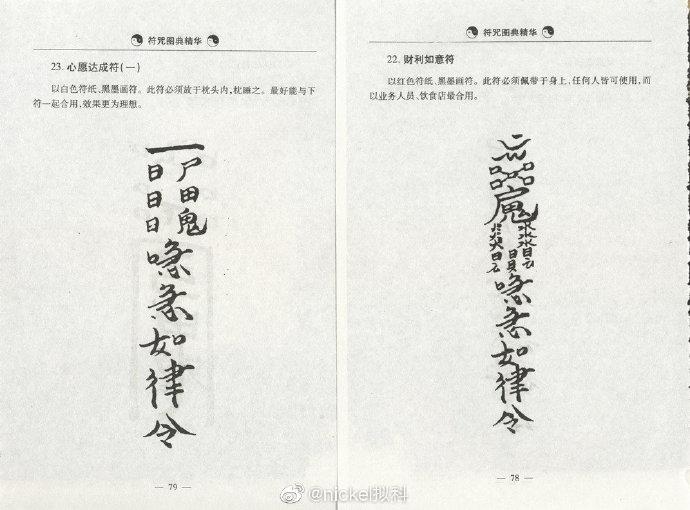 符咒图典精华
23. 心愿达成符(一)
以白色符纸、黑墨画符。此符必须放于枕头内,枕睡之。最好能与下
符一起合用,效果更为理想。
一
日日日
尸田鬼
急如律令
— 79 —
符咒图典精华
22. 财利如意符
以红色符纸、黑墨画符。此符必须佩带于身上,任何人皆可使用,而
以业务人员、饮食店最合用。
急如律令
— 78 —
@nickel拟科